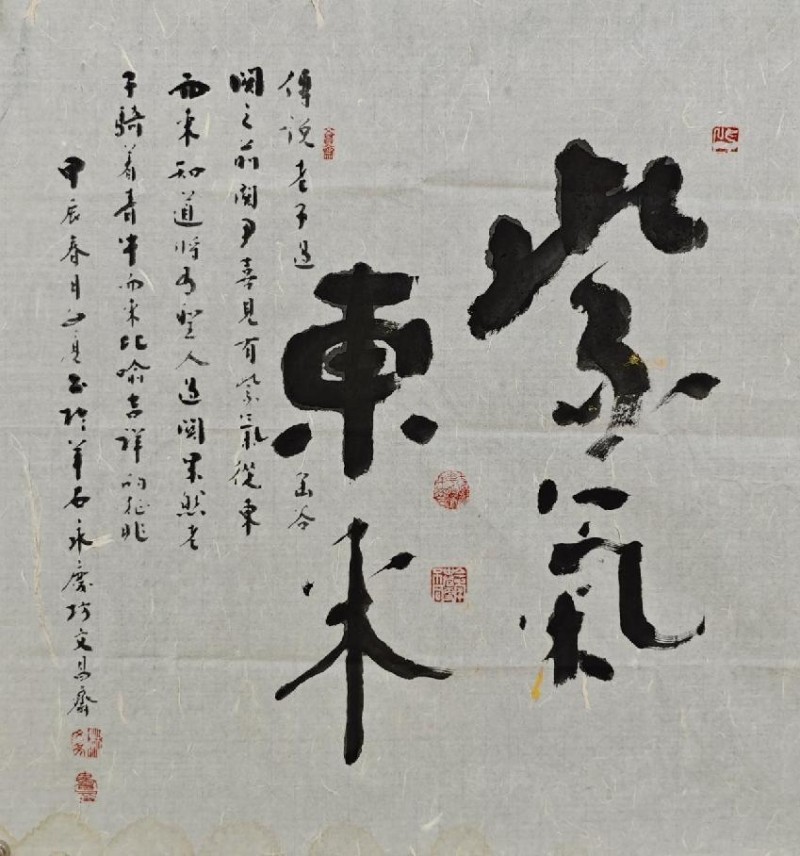 紫氣
東来
傳说老子過函谷
関之前関尹喜見有紫氣從東
而来知道将有聖人過関果然老
子騎着青牛而来比喻吉祥的征兆
甲辰春月 書於羊石永慶坊文昌齋